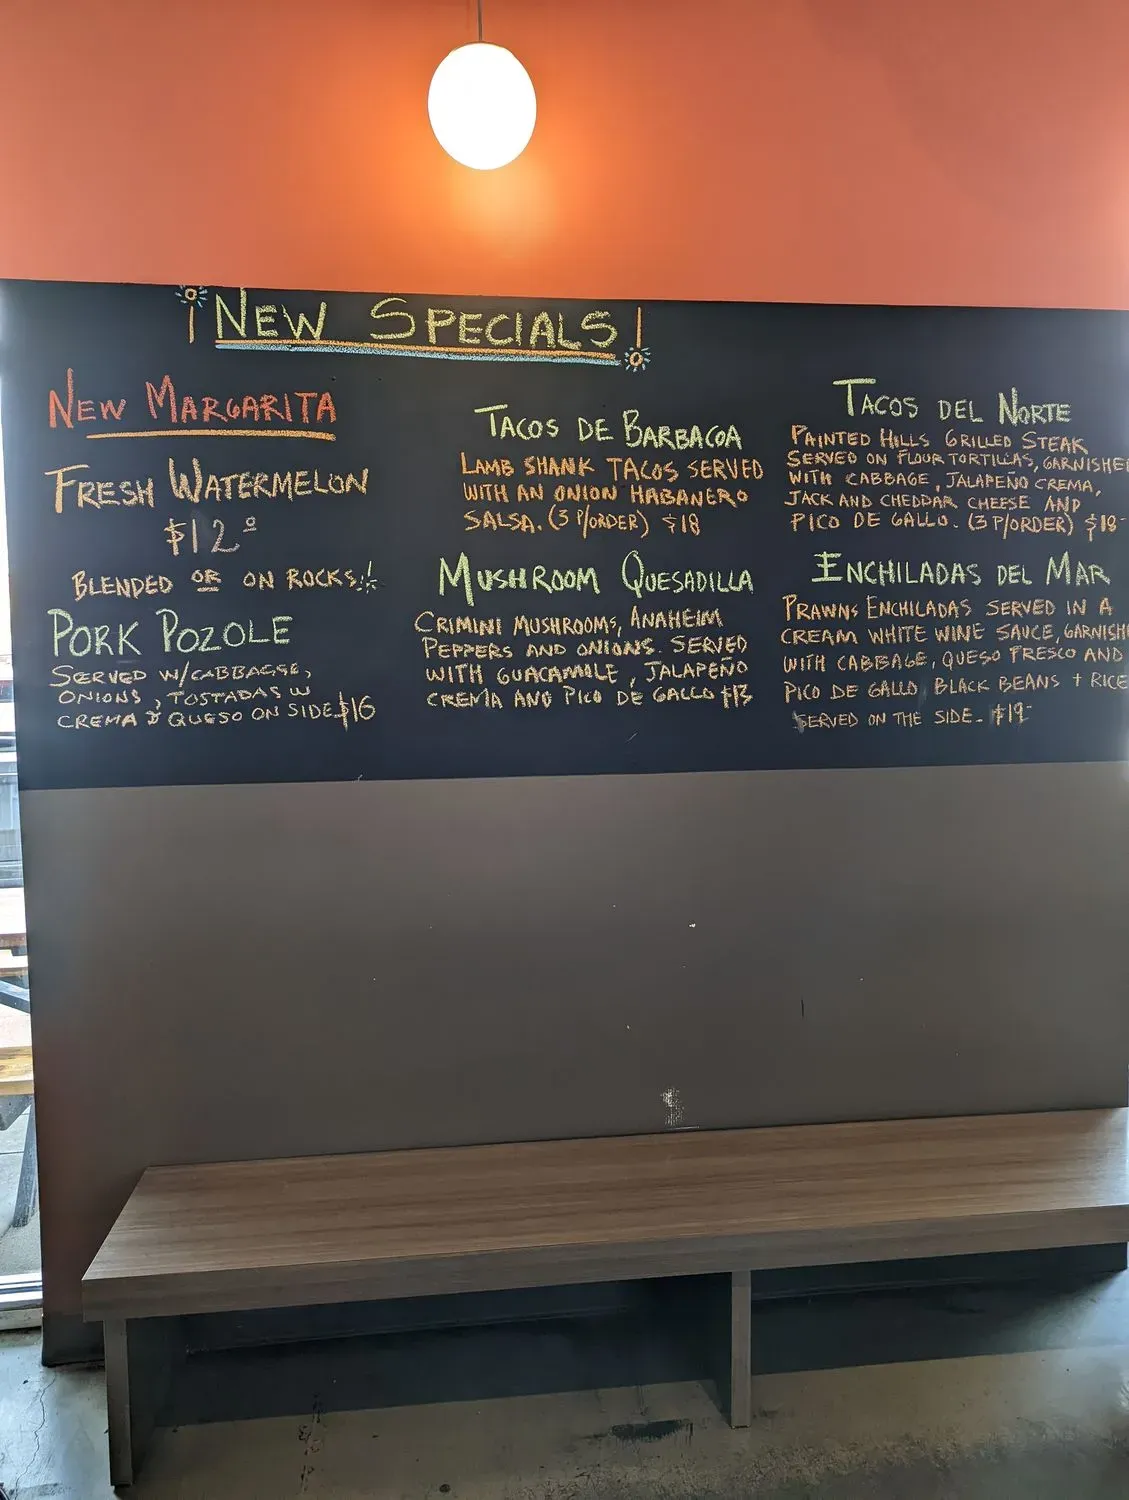 ¡NEW SPECIALS!
NEW MARGARITA
FRESH WATERMELON
$12º
BLENDED OR ON ROCKS!
PORK POZOLE
SERVED W/CABBAGSE,
ONIONS, TOSTADAS W
CREMA & QUESO ON SIDE $16
TACOS DE BARBACOA
LAMB SHANK TACOS SERVED
WITH AN ONION HABANERO
SALSA. (3 P/ORDER) $18
MUSHROOM QUESADILLA
CRIMINI MUSHROOMS, ANAHEIM
PEPPERS AND ONIONS. SERVED
WITH GUACAMOLE, JALAPEÑO
CREMA AND PICO DE GALLO $13
TACOS DEL NORTE
PAINTED HILLS GRILLED STEAK
SERVED ON FLOUR TORTILLAS, GARNISHE
WITH CABBAGE, JALAPEÑO CREMA,
JACK AND CHEDDAR CHEESE AND
PICO DE GALLO. (3 P/ORDER) $18-
ENCHILADAS DEL MAR
PRAWNS ENCHILADAS SERVED IN A
CREAM WHITE WINE SAUCE, GARNISH
WITH CABBAGE, QUESO FRESCO AND
PICO DE GALLO BLACK BEANS + RICE
SERVED ON THE SIDE. $19-